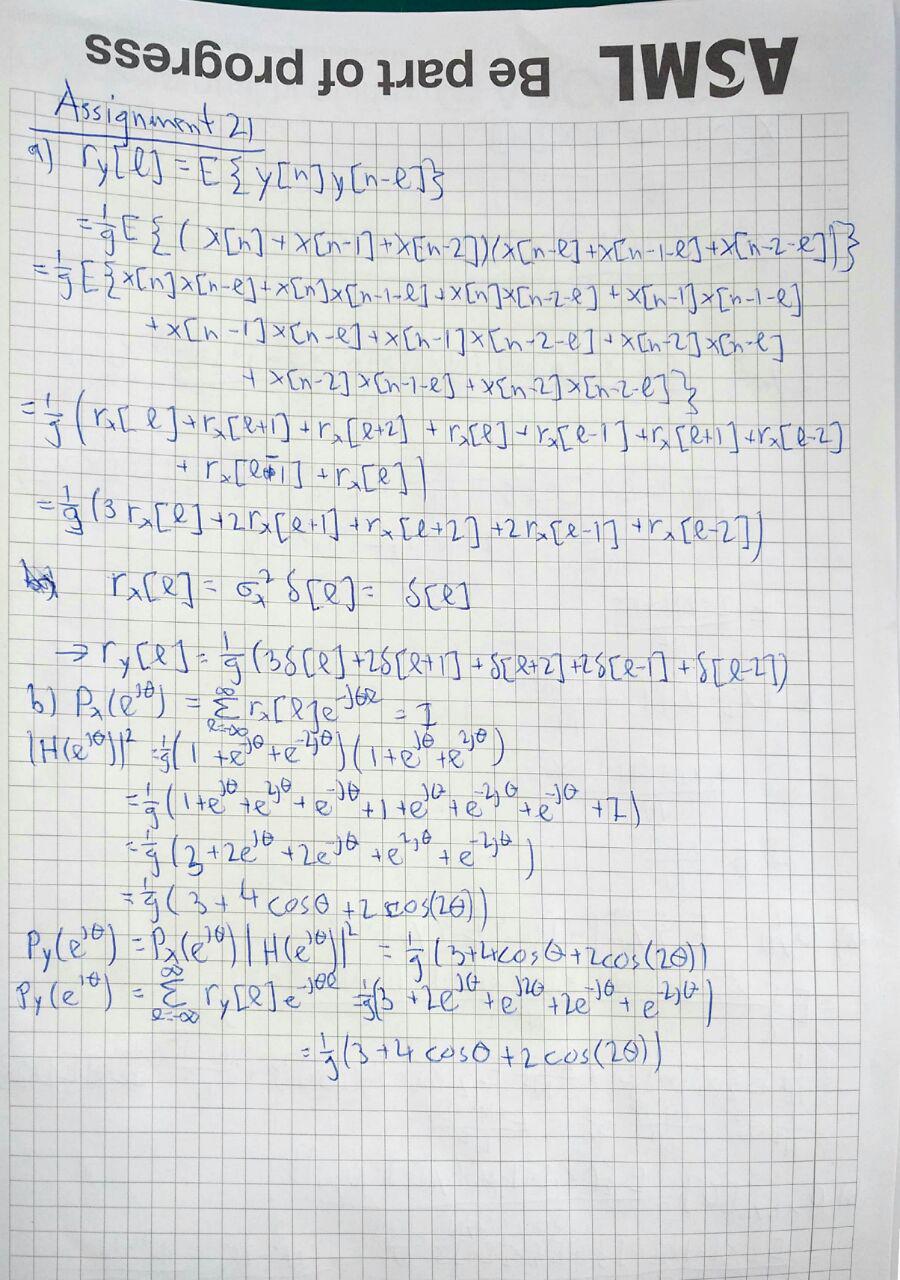 ASML Be part of progress
Assignment 21
a) ry[l] = E{y[n]y[n-l]}
= 1/9 E{(x[n]+x[n-1]+x[n-2])(x[n-l]+x[n-1-l]+x[n-2-l])}
= 1/9 E{x[n]x[n-l]+x[n]x[n-1-l]+x[n]x[n-2-l]+x[n-1]x[n-1-l]
+x[n-1]x[n-l]+x[n-1]x[n-2-l]+x[n-2]x[n-l]
+x[n-2]x[n-1-l]+x[n-2]x[n-2-l]}
= 1/9 (rx[l]+rx[l+1]+rx[l+2]+rx[l]+rx[l-1]+rx[l+1]+rx[l-2]
+rx[l-1]+rx[l])
= 1/9 (3rx[l]+2rx[l+1]+rx[l+2]+2rx[l-1]+rx[l-2])
rx[l] = σx² δ[l] = δ[l]
→ ry[l] = 1/9 (3δ[l]+2δ[l+1]+δ[l+2]+2δ[l-1]+δ[l-2])
b) Px(e^jθ) = Σ_{l=-∞}^{∞} rx[l]e^-jθl = 1
|H(e^jθ)|² = 1/9 (1+e^-jθ+e^-2jθ)(1+e^jθ+e^2jθ)
= 1/9 (1+e^jθ+e^2jθ+e^-jθ+1+e^jθ+e^-2jθ+e^-jθ+1)
= 1/9 (3+2e^jθ+2e^-jθ+e^2jθ+e^-2jθ)
= 1/9 (3+4cosθ+2cos(2θ))
Py(e^jθ) = Px(e^jθ)|H(e^jθ)|² = 1/9 (3+4cosθ+2cos(2θ))
Py(e^jθ) = Σ_{l=-∞}^{∞} ry[l]e^-jθl = 1/9 (3+2e^jθ+e^j2θ+2e^-jθ+e^-2jθ)
= 1/9 (3+4cosθ+2cos(2θ))